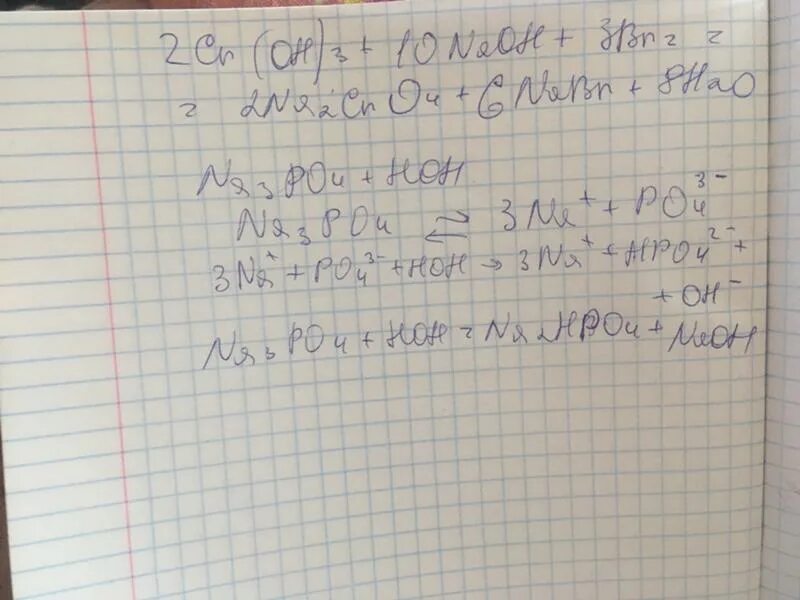 2Cr(OH)3 + 10 NaOH + 3Br2 =
= 2Na2CrO4 + 6NaBr + 8H2O
Na3PO4 + HOH
Na3PO4 ⇌ 3Na⁺ + PO4³⁻
3Na⁺ + PO4³⁻ + HOH → 3Na⁺ + HPO4²⁻ +
+ OH⁻
Na3PO4 + HOH = Na2HPO4 + NaOH